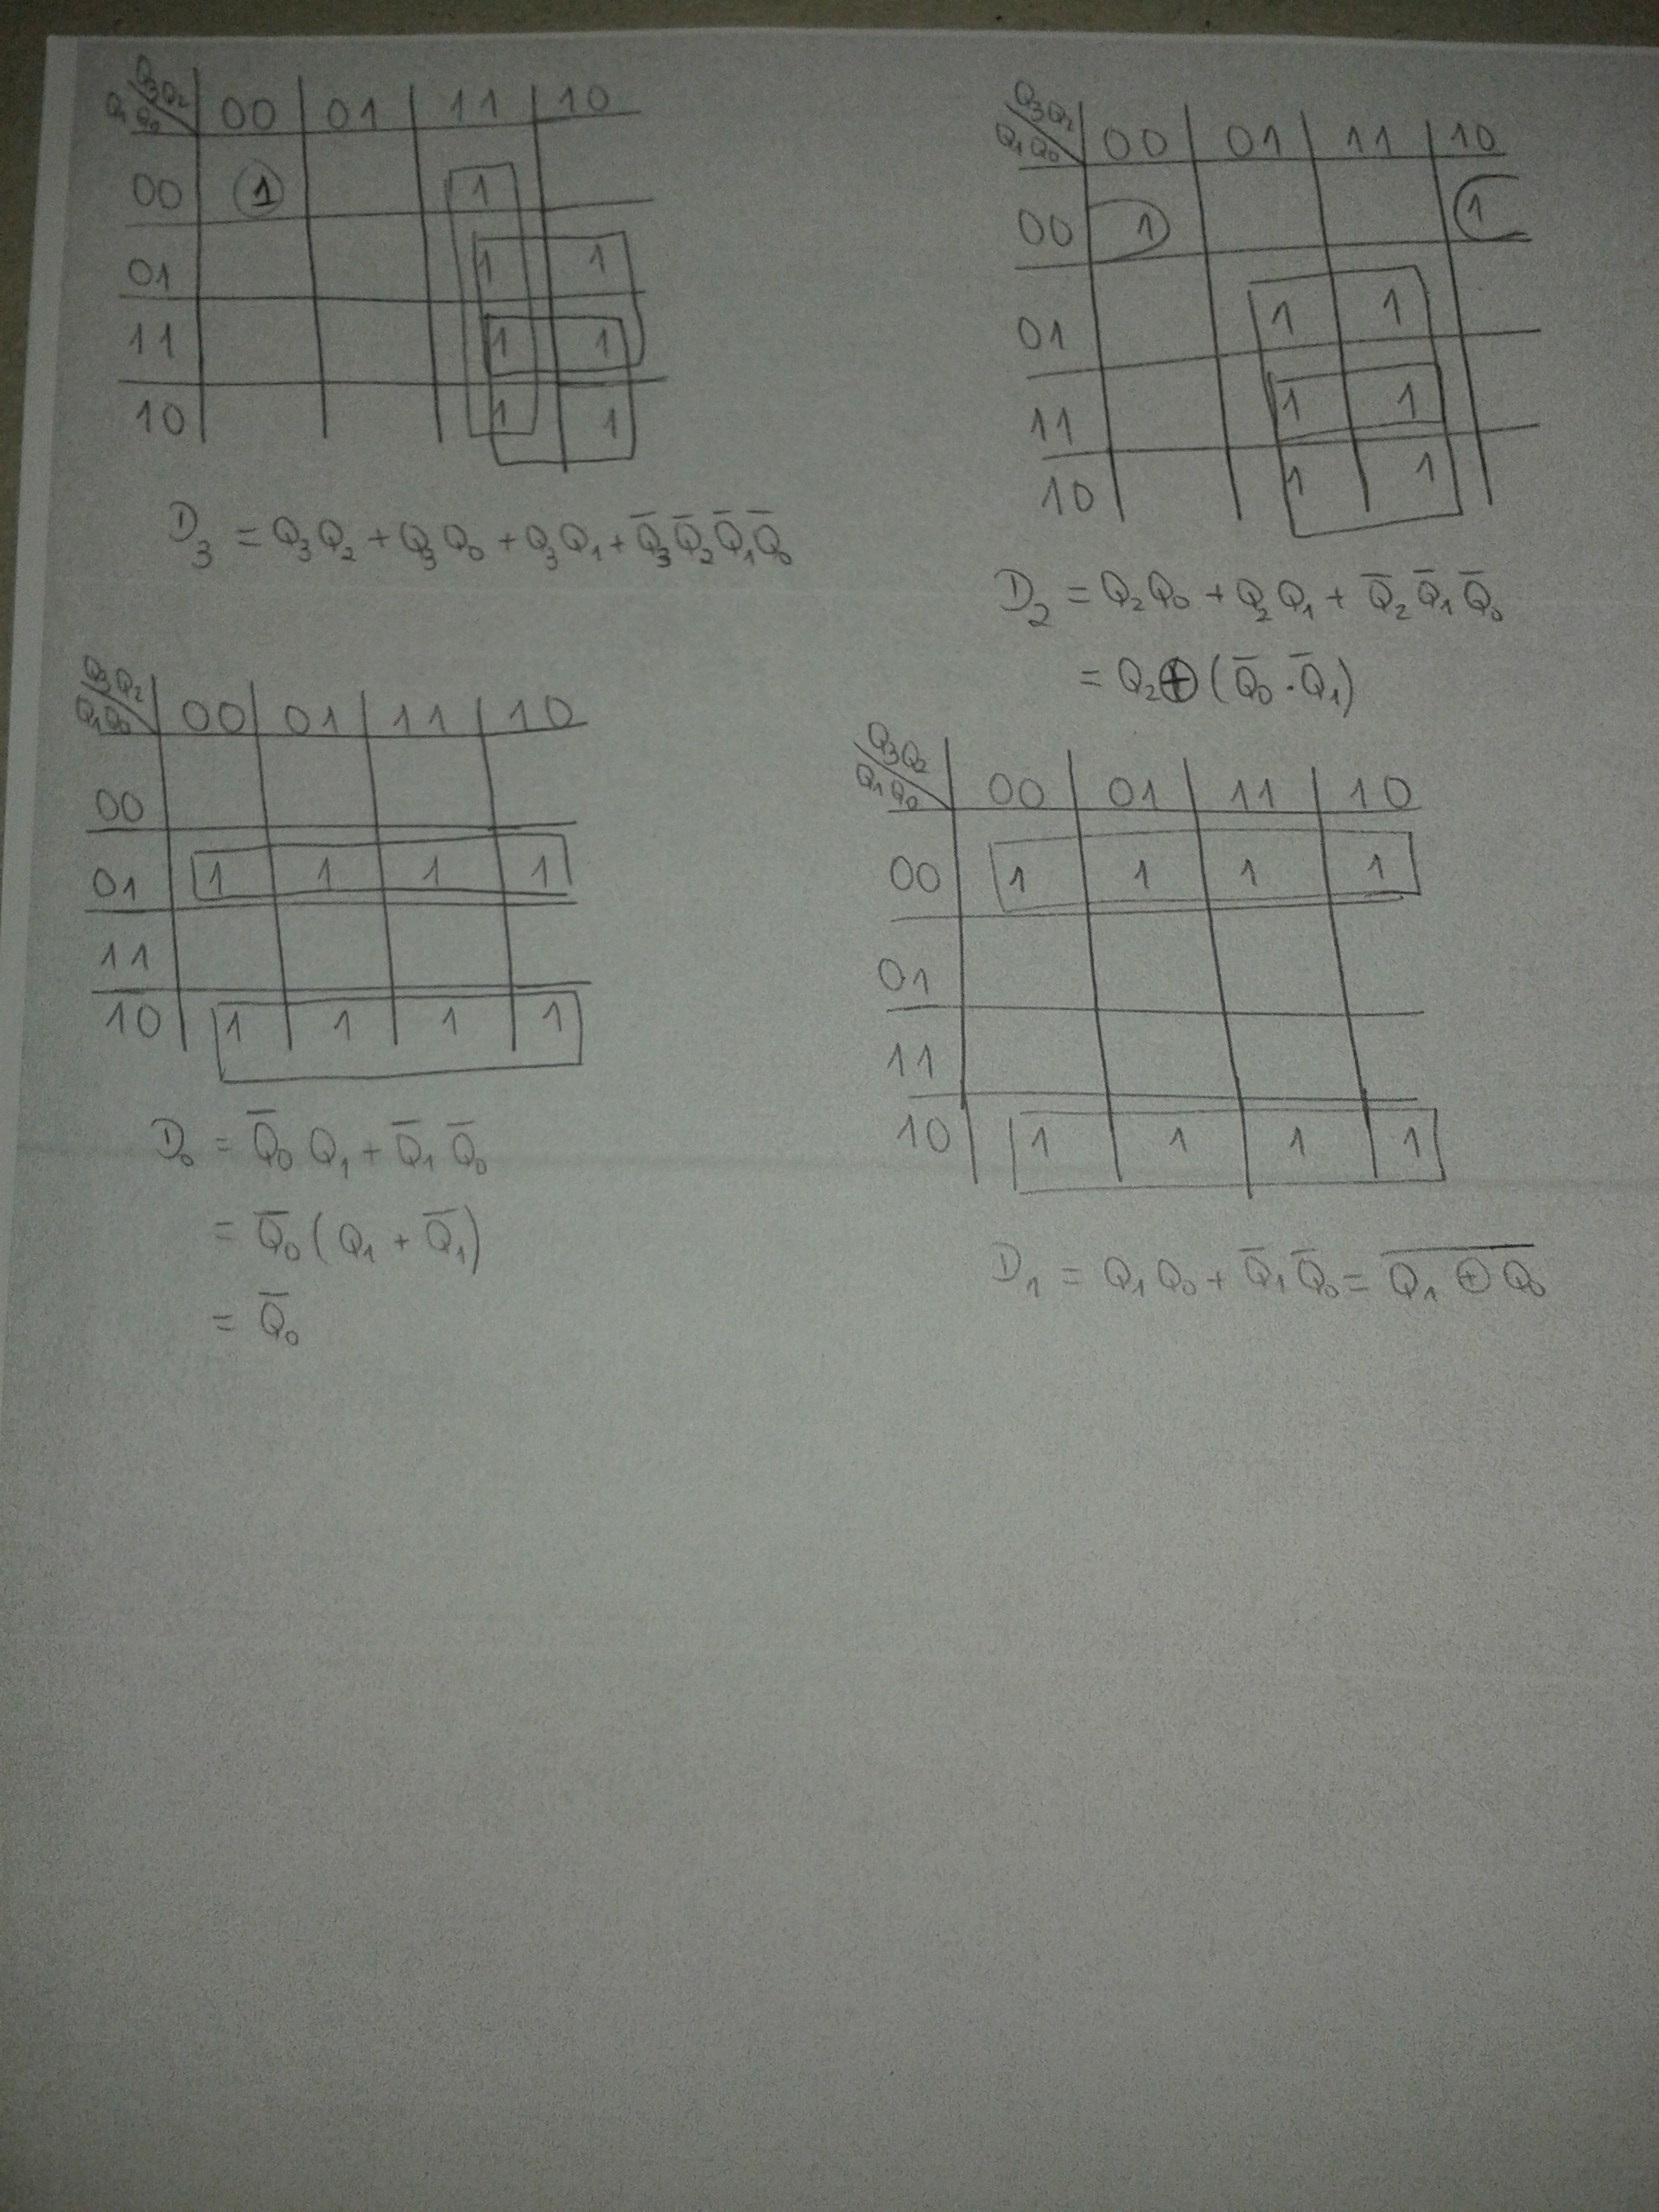 Q3Q2
Q1Q0 00 01 11 10
00 1 1
01 1 1
11 1 1
10 1 1
D3 = Q3Q2 + Q3Q0 + Q3Q1 + Q̅3Q̅2Q̅1Q̅0
Q3Q2
Q1Q0 00 01 11 10
00 1 1
01 1 1
11 1 1
10 1 1
D2 = Q2Q0 + Q2Q1 + Q̅2Q̅1Q̅0
= Q2⊕(Q̅0.Q̅1)
Q3Q2
Q1Q0 00 01 11 10
00
01 1 1 1 1
11
10 1 1 1 1
D0 = Q̅0Q1 + Q̅1Q̅0
= Q̅0(Q1 + Q̅1)
= Q̅0
Q3Q2
Q1Q0 00 01 11 10
00 1 1 1 1
01
11
10 1 1 1 1
D1 = Q1Q0 + Q̅1Q̅0 = \overline{Q1 ⊕ Q0}